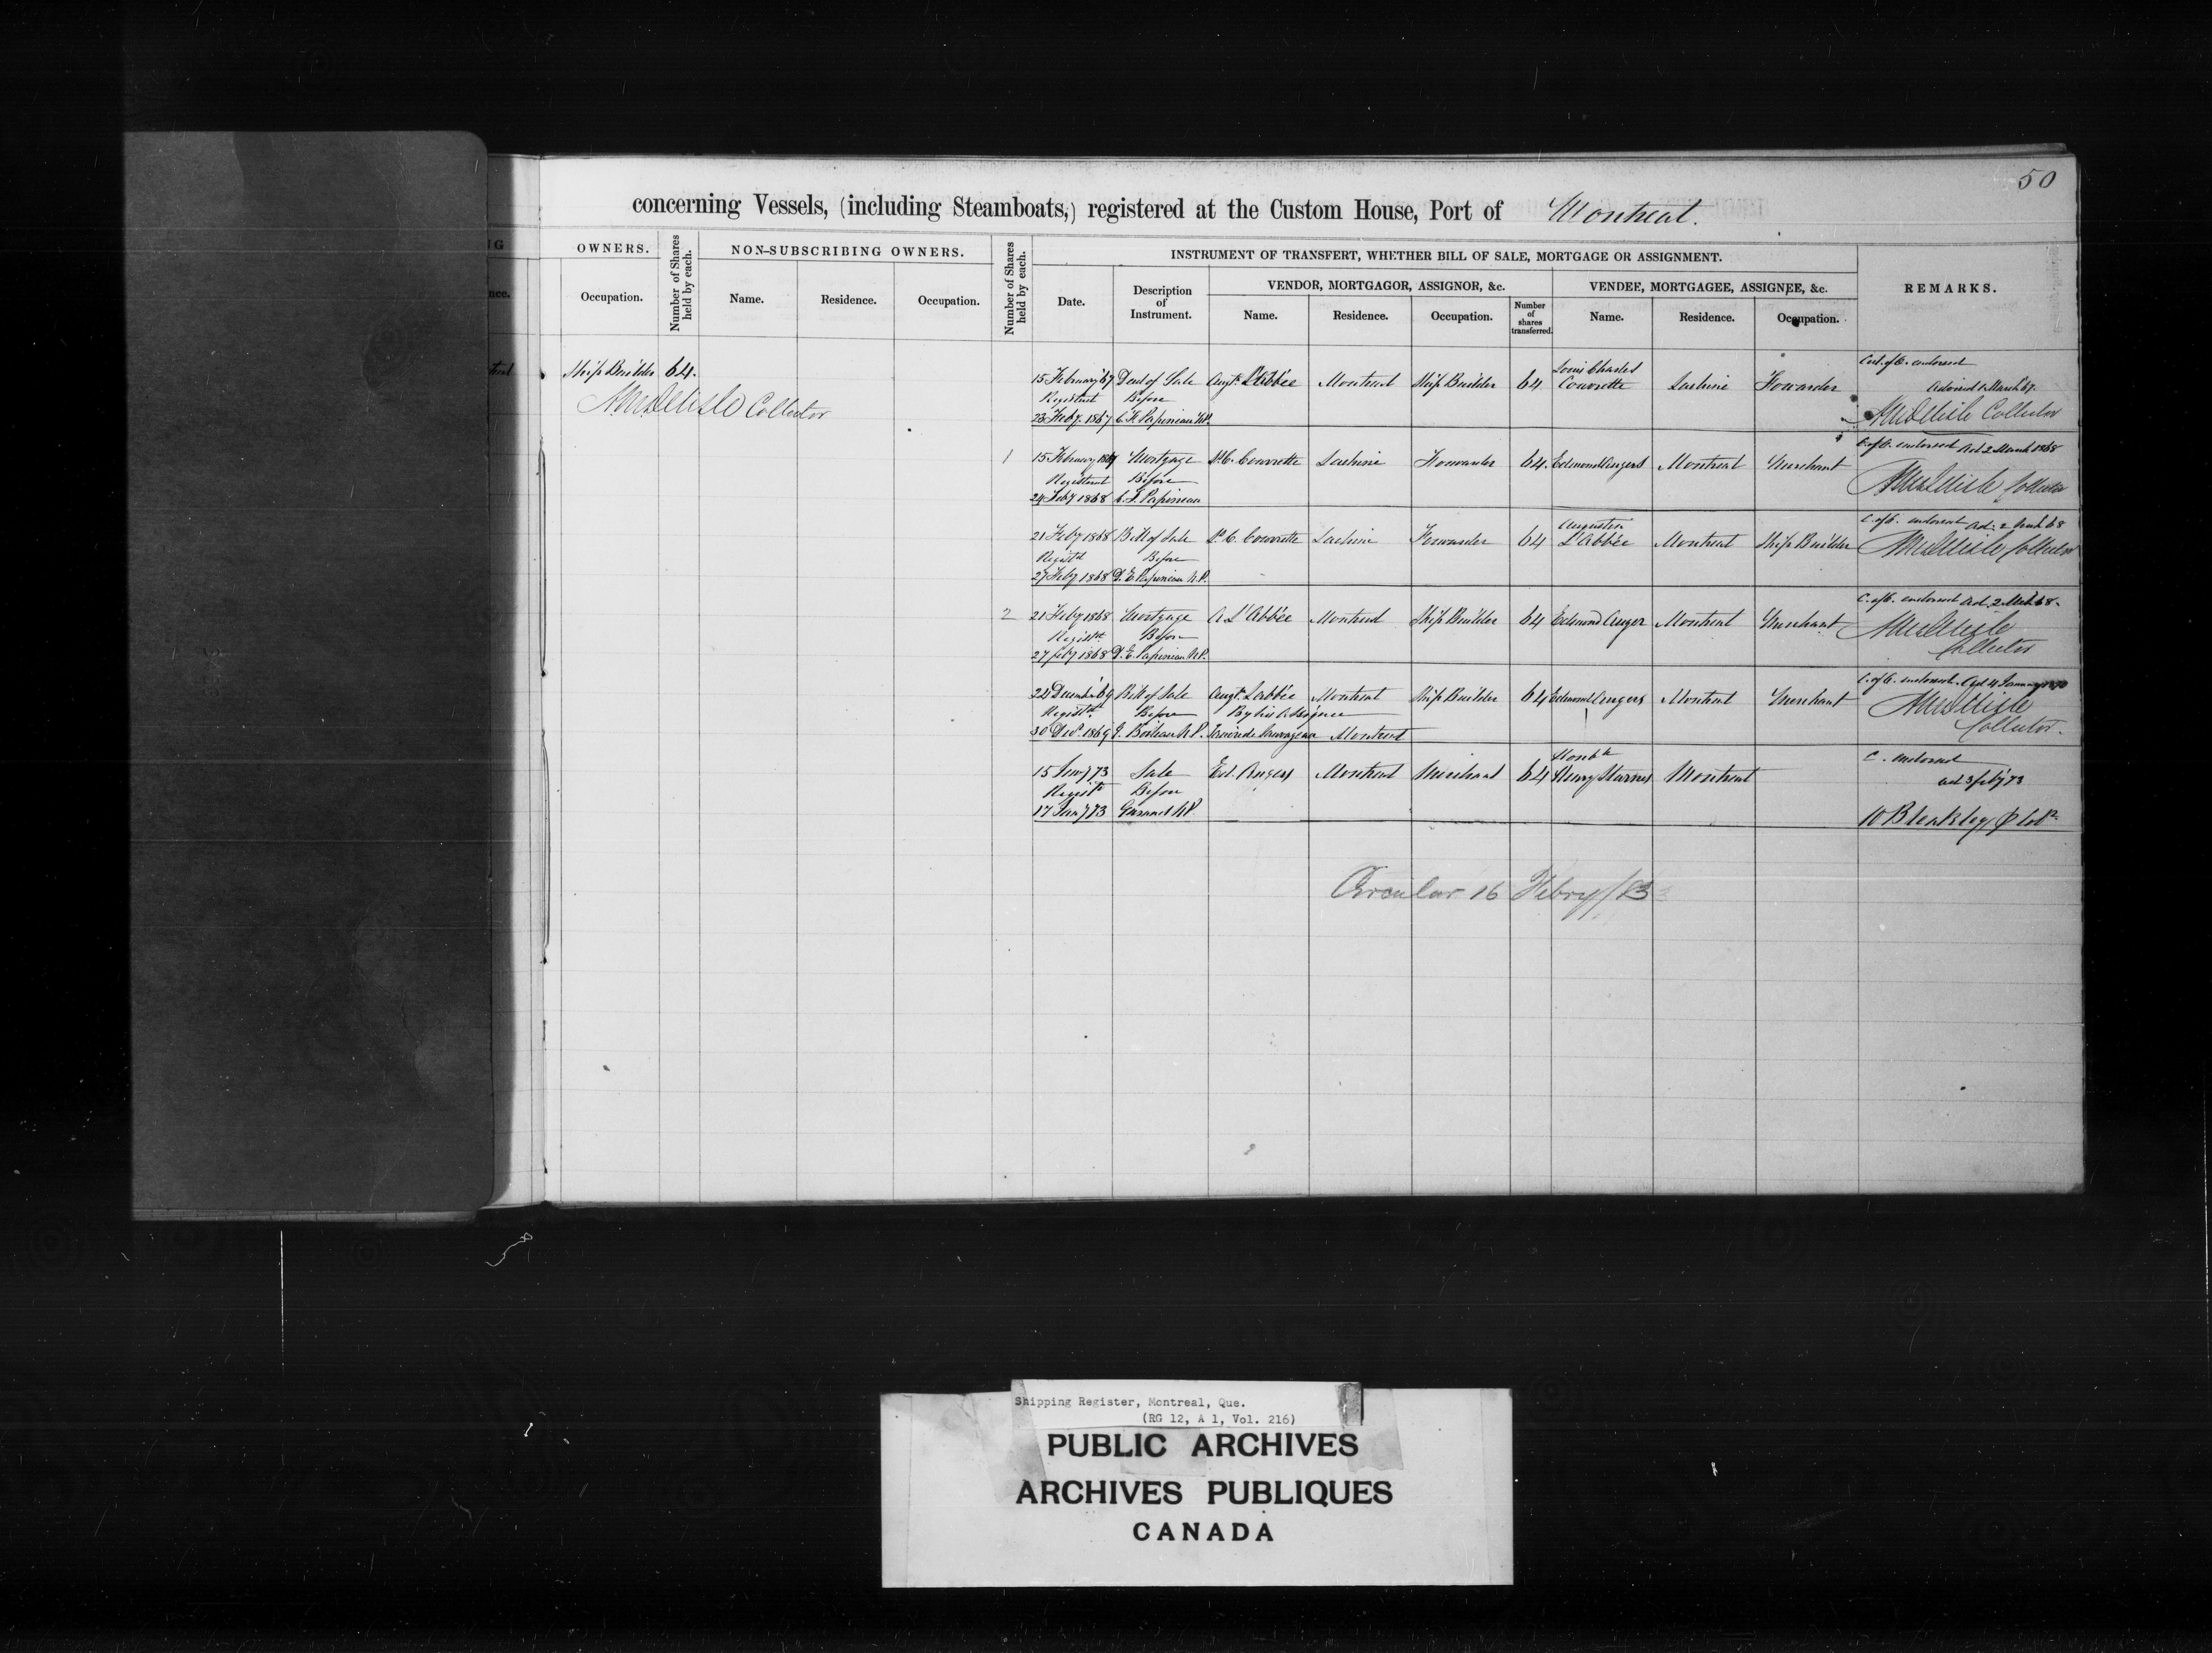 50
concerning Vessels, (including Steamboats,) registered at the Custom House, Port of Montreal.
OWNERS.
Number of Shares held by each.
NON-SUBSCRIBING OWNERS.
Number of Shares held by each.
INSTRUMENT OF TRANSFERT, WHETHER BILL OF SALE, MORTGAGE OR ASSIGNMENT.
REMARKS.
Occupation.
Name.
Residence.
Occupation.
Date.
Description of Instrument.
VENDOR, MORTGAGOR, ASSIGNOR, &c.
VENDEE, MORTGAGEE, ASSIGNEE, &c.
Name.
Residence.
Occupation.
Number of shares transferred.
Name.
Residence.
Occupation.
Ship Builder 64.
Delisle Collector
Louis Charles
15 February '67 Deed of Sale Augt. L'Abbée Montreal Ship Builder 64 Couvrette Lachine Forwarder
Registered Before
23 Feby. 1867 C. F. Papineau N.P.
C. of O. endorsed
Advised 1 March 67.
Delisle Collector
1 15 February Mortgage L. C. Couvrette Lachine Forwarder 64. Edmond Angers Montreal Merchant
Registered Before
24 Feby 1868 C. F. Papineau
C. of O. endorsed Ad 2 March 1868
Delisle Collector
Augustin
21 Feby 1868 Bill of Sale L. C. Couvrette Lachine Forwarder 64 L'Abbée Montreal Ship Builder
Registd Before
27 Feby 1868 D. E. Papineau N.P.
C. of O. endorsed Ad. 2 March 68
Delisle Collector
2 21 Feby 1868 Mortgage A L'Abbée Montreal Ship Builder 64 Edmond Anger Montreal Merchant
Registd Before
27 Feby 1868 D. E. Papineau N.P.
C. of O. endorsed Ad. 2 Mch 68.
Delisle
Collector
22 December 69 Bill of Sale Augt. Labbée Montreal Ship Builder 64 Edmond Angers Montreal Merchant
Registd Before By his Assignee
30 Decr. 1869 Boileau N.P. Sauvageau Montreal
C. of O. endorsed. Ad 4 January 1870
Delisle
Collector.
Honble
15 Jany 73 Sale Ed. Angers Montreal Merchant 64 Henry Starnes Montreal
Registd Before
17 Jany 73 N.P.
C. endorsed
Ad 3 feby 73
W Bleakley
Circular 16 Febry/83
Shipping Register, Montreal, Que.
(RG 12, A 1, Vol. 216)
PUBLIC ARCHIVES
ARCHIVES PUBLIQUES
CANADA